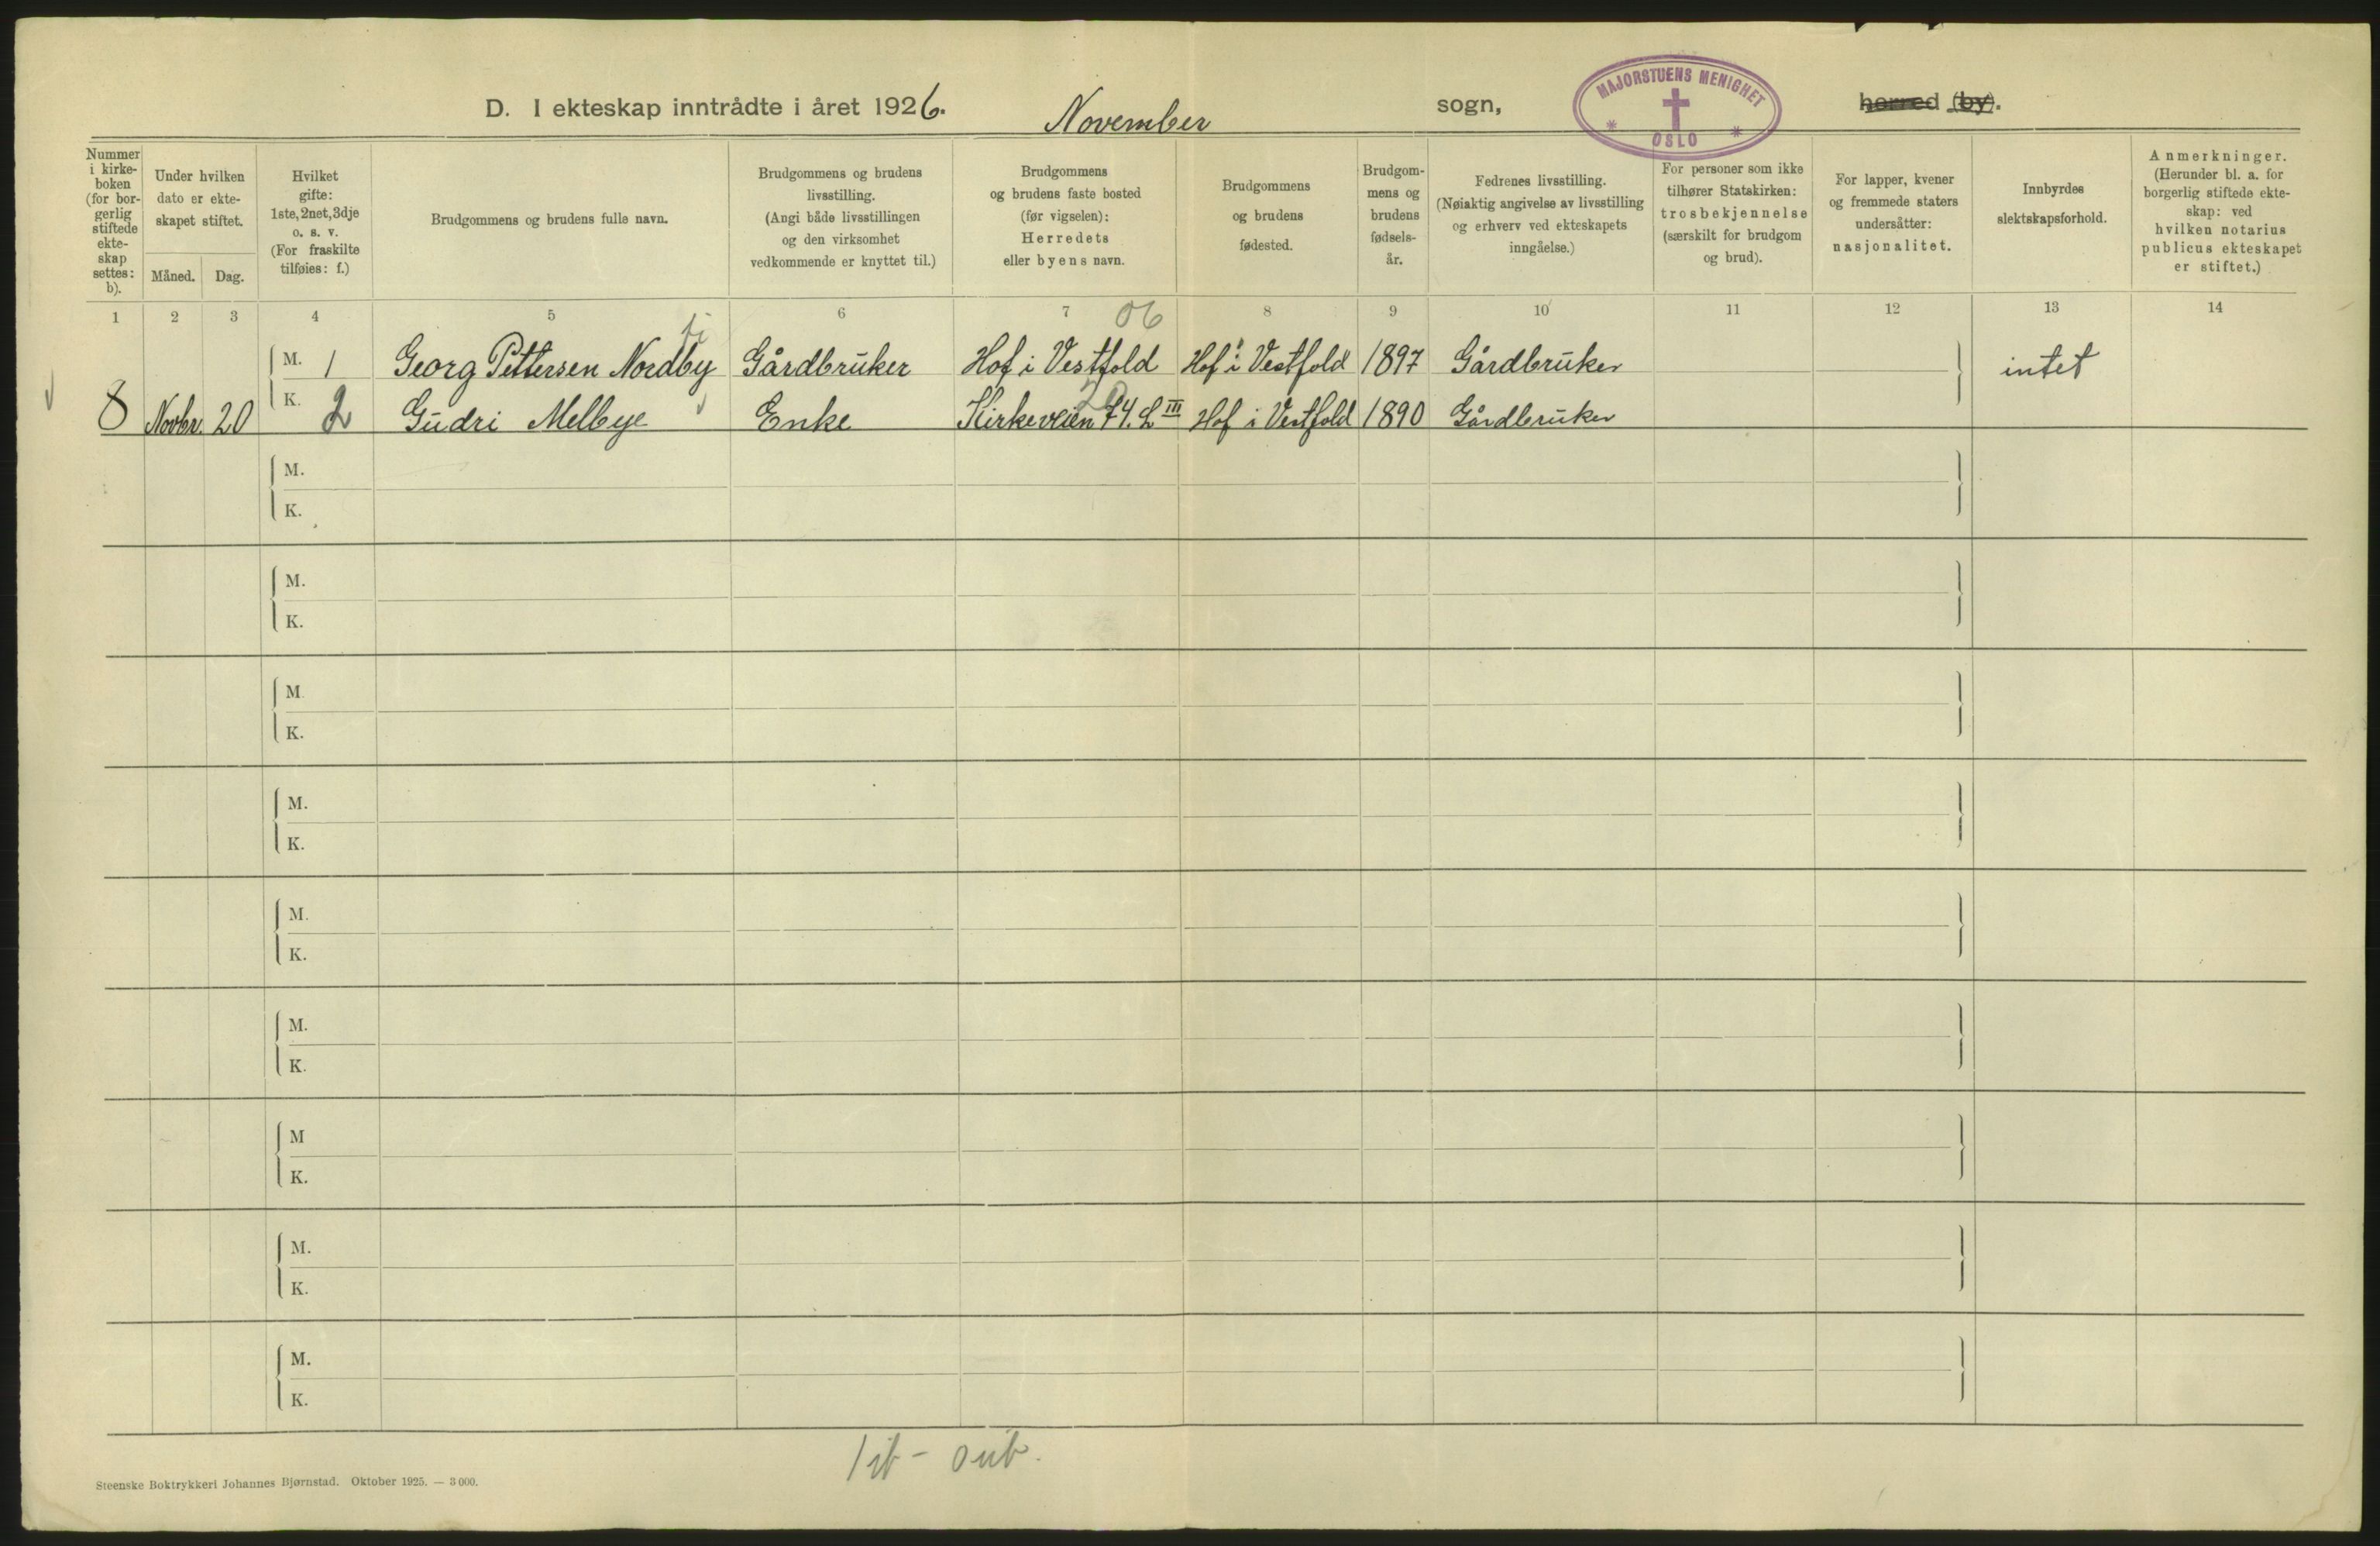 D. I ekteskap inntrådte i året 1926. November sogn, herred (by).
MAJORSTUENS MENIGHET
* OSLO *
Nummer i kirke-boken (for bor-gerlig stiftede ekte-skap settes: b).
Under hvilken dato er ekte-skapet stiftet.
Måned. Dag.
Hvilket gifte: 1ste, 2net, 3dje o. s. v. (For fraskilte tilføies: f.)
Brudgommens og brudens fulle navn.
Brudgommens og brudens livsstilling. (Angi både livsstillingen og den virksomhet vedkommende er knyttet til.)
Brudgommens og brudens faste bosted (før vigselen): Herredets eller byens navn.
Brudgommens og brudens fødested.
Brudgom-mens og brudens fødsels-år.
Fedrenes livsstilling. (Nøiaktig angivelse av livsstilling og erhverv ved ekteskapets inngåelse.)
For personer som ikke tilhører Statskirken: trosbekjennelse (særskilt for brudgom og brud).
For lapper, kvener og fremmede staters undersåtter: nasjonalitet.
Innbyrdes slektskapsforhold.
Anmerkninger. (Herunder bl. a. for borgerlig stiftede ekte-skap: ved hvilken notarius publicus ekteskapet er stiftet.)
1 2 3 4 5 6 7 8 9 10 11 12 13 14
06
M. 1 Georg Pettersen Nordby Gårdbruker Hof i Vestfold Hof i Vestfold 1897 Gårdbruker intet
8 Novbr. 20 K. 2 Gudri Melbye Enke Kirkeveien 74. L III Hof i Vestfold 1890 Gårdbruker
M.
K.
M.
K.
M.
K.
M.
K.
M.
K.
M.
K.
M
K.
M.
K.
M.
K.
Steenske Boktrykkeri Johannes Bjørnstad. Oktober 1925. — 3 000.